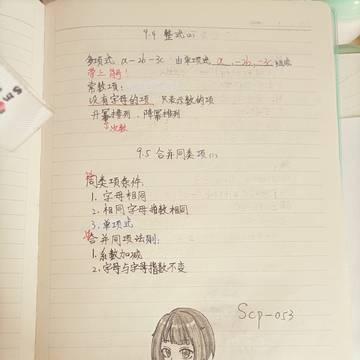 9.4 整式(2)
多项式 a-2b-3c 由单项式 a、-2b、-3c 组成
带上符号!
常数项:
没有字母的项 只表示数的项
升幂排列、降幂排列
次数
9.5 合并同类项(1)
同类项条件:
1. 字母相同
2. 相同字母指数相同
3. 单项式
合并同项法则:
1. 系数加减
2. 字母与字母指数不变
Scp-053